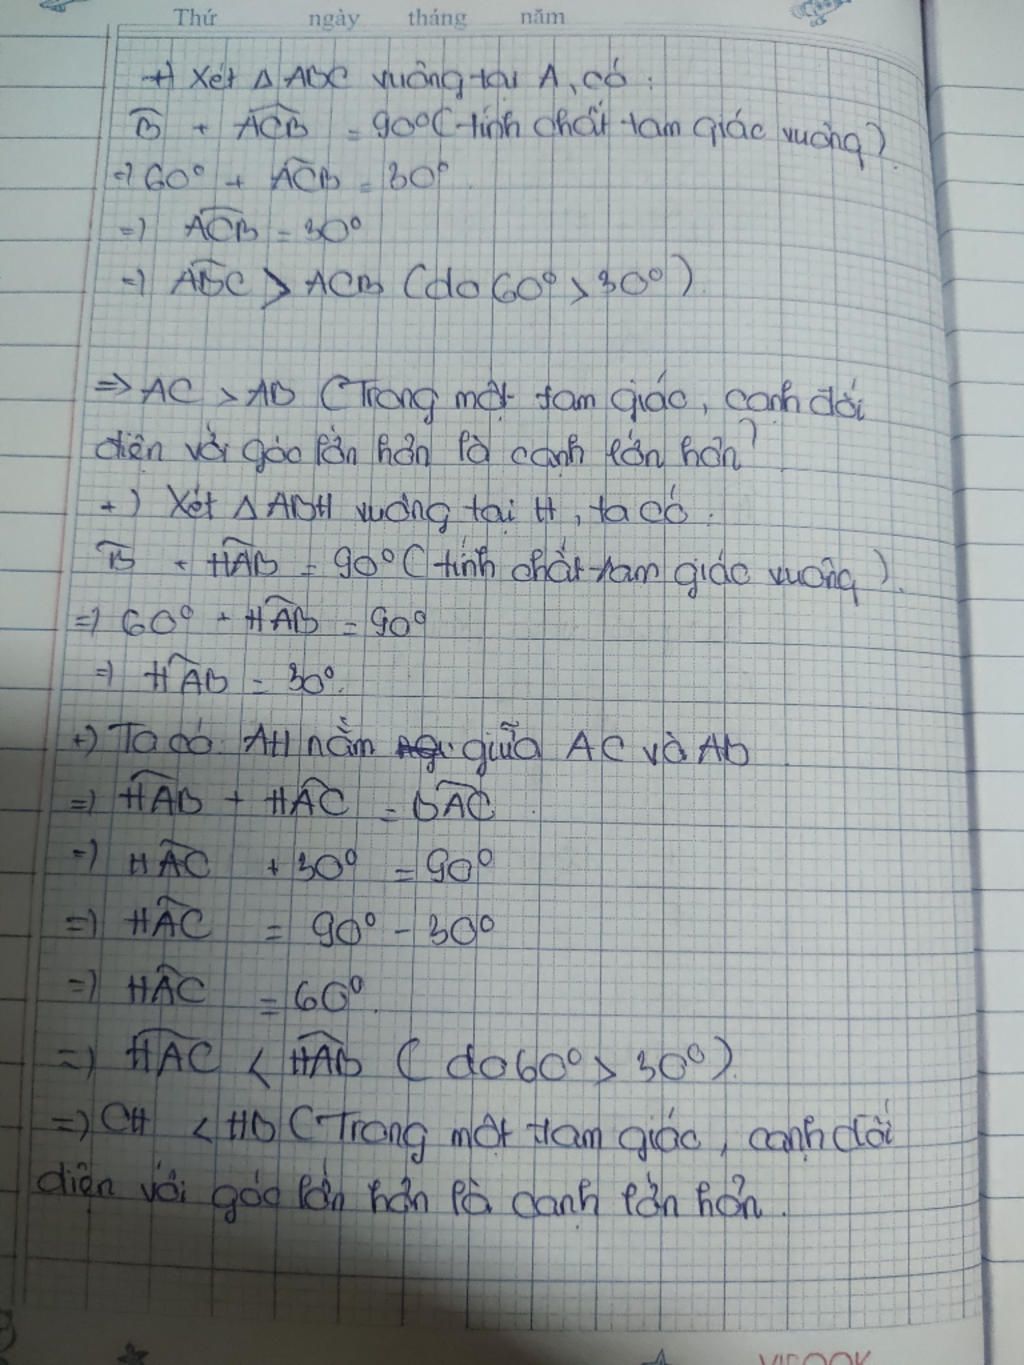 Thứ ngày tháng năm
+) Xét △ ABC vuông tại A, có:
B̂ + ACB̂ = 90° (tính chất tam giác vuông).
=) 60° + ACB̂ = 30°
=) ACB̂ = 30°
=) ABĈ > ACB (do 60° > 30°).
=> AC > AB (Trong một tam giác, cạnh đối
diện với góc lớn hơn là cạnh lớn hơn)
+) Xét △ ABH vuông tại H, ta có:
B̂ + HAB̂ = 90° (tính chất tam giác vuông).
=) 60° + HAB̂ = 90°
=) HAB̂ = 30°.
+) Ta có AH nằm giữa AC và AB
=) HAB̂ + HAĈ = BAĈ.
=) HAĈ + 30° = 90°
=) HAĈ = 90° - 30°
=) HAĈ = 60°.
=) HAĈ < HAB̂ (do 60° > 30°).
=) CH < HB (Trong một tam giác, cạnh đối
diện với góc lớn hơn là cạnh lớn hơn.